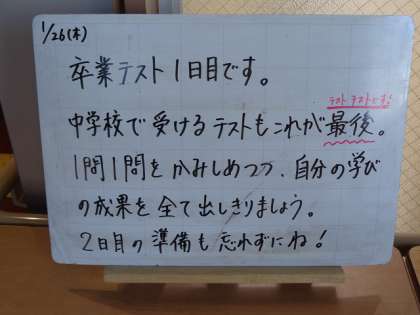 1/26(木)
卒業テスト1日目です。
テストテストですよ
中学校で受けるテストもこれが最後。
1問1問をかみしめつつ、自分の学び
の成果を全て出しきりましょう。
2日目の準備も忘れずにね!